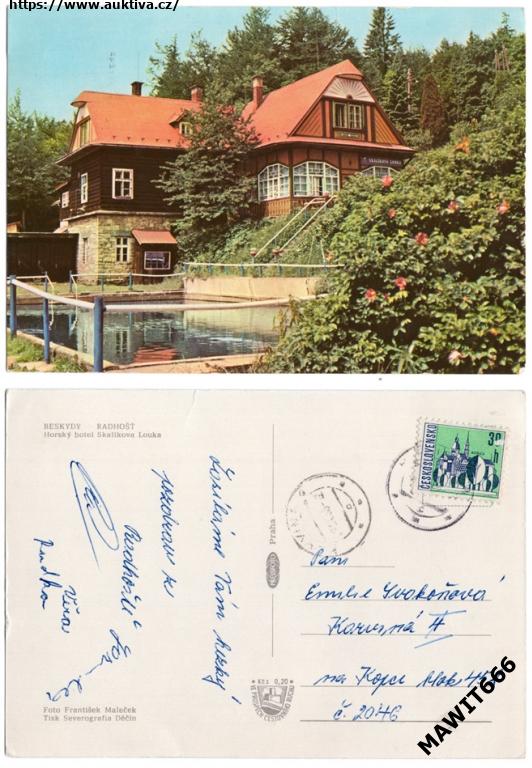 https://www.auktiva.cz/
SKALÍKOVA LOUKA
BESKYDY RADHOŠŤ
Horský hotel Skalíkova Louka
30
h
ČESKOSLOVENSKO
Praha
Posíláme Vám hezký
pozdrav z
Radhoště
Věra
Paní
Emilie Svakoňová
Karviná II
na Kopci blok
č. 2046
Kčs 0,20
Foto František Maleček
Tisk Severografia Děčín
MAWIT666